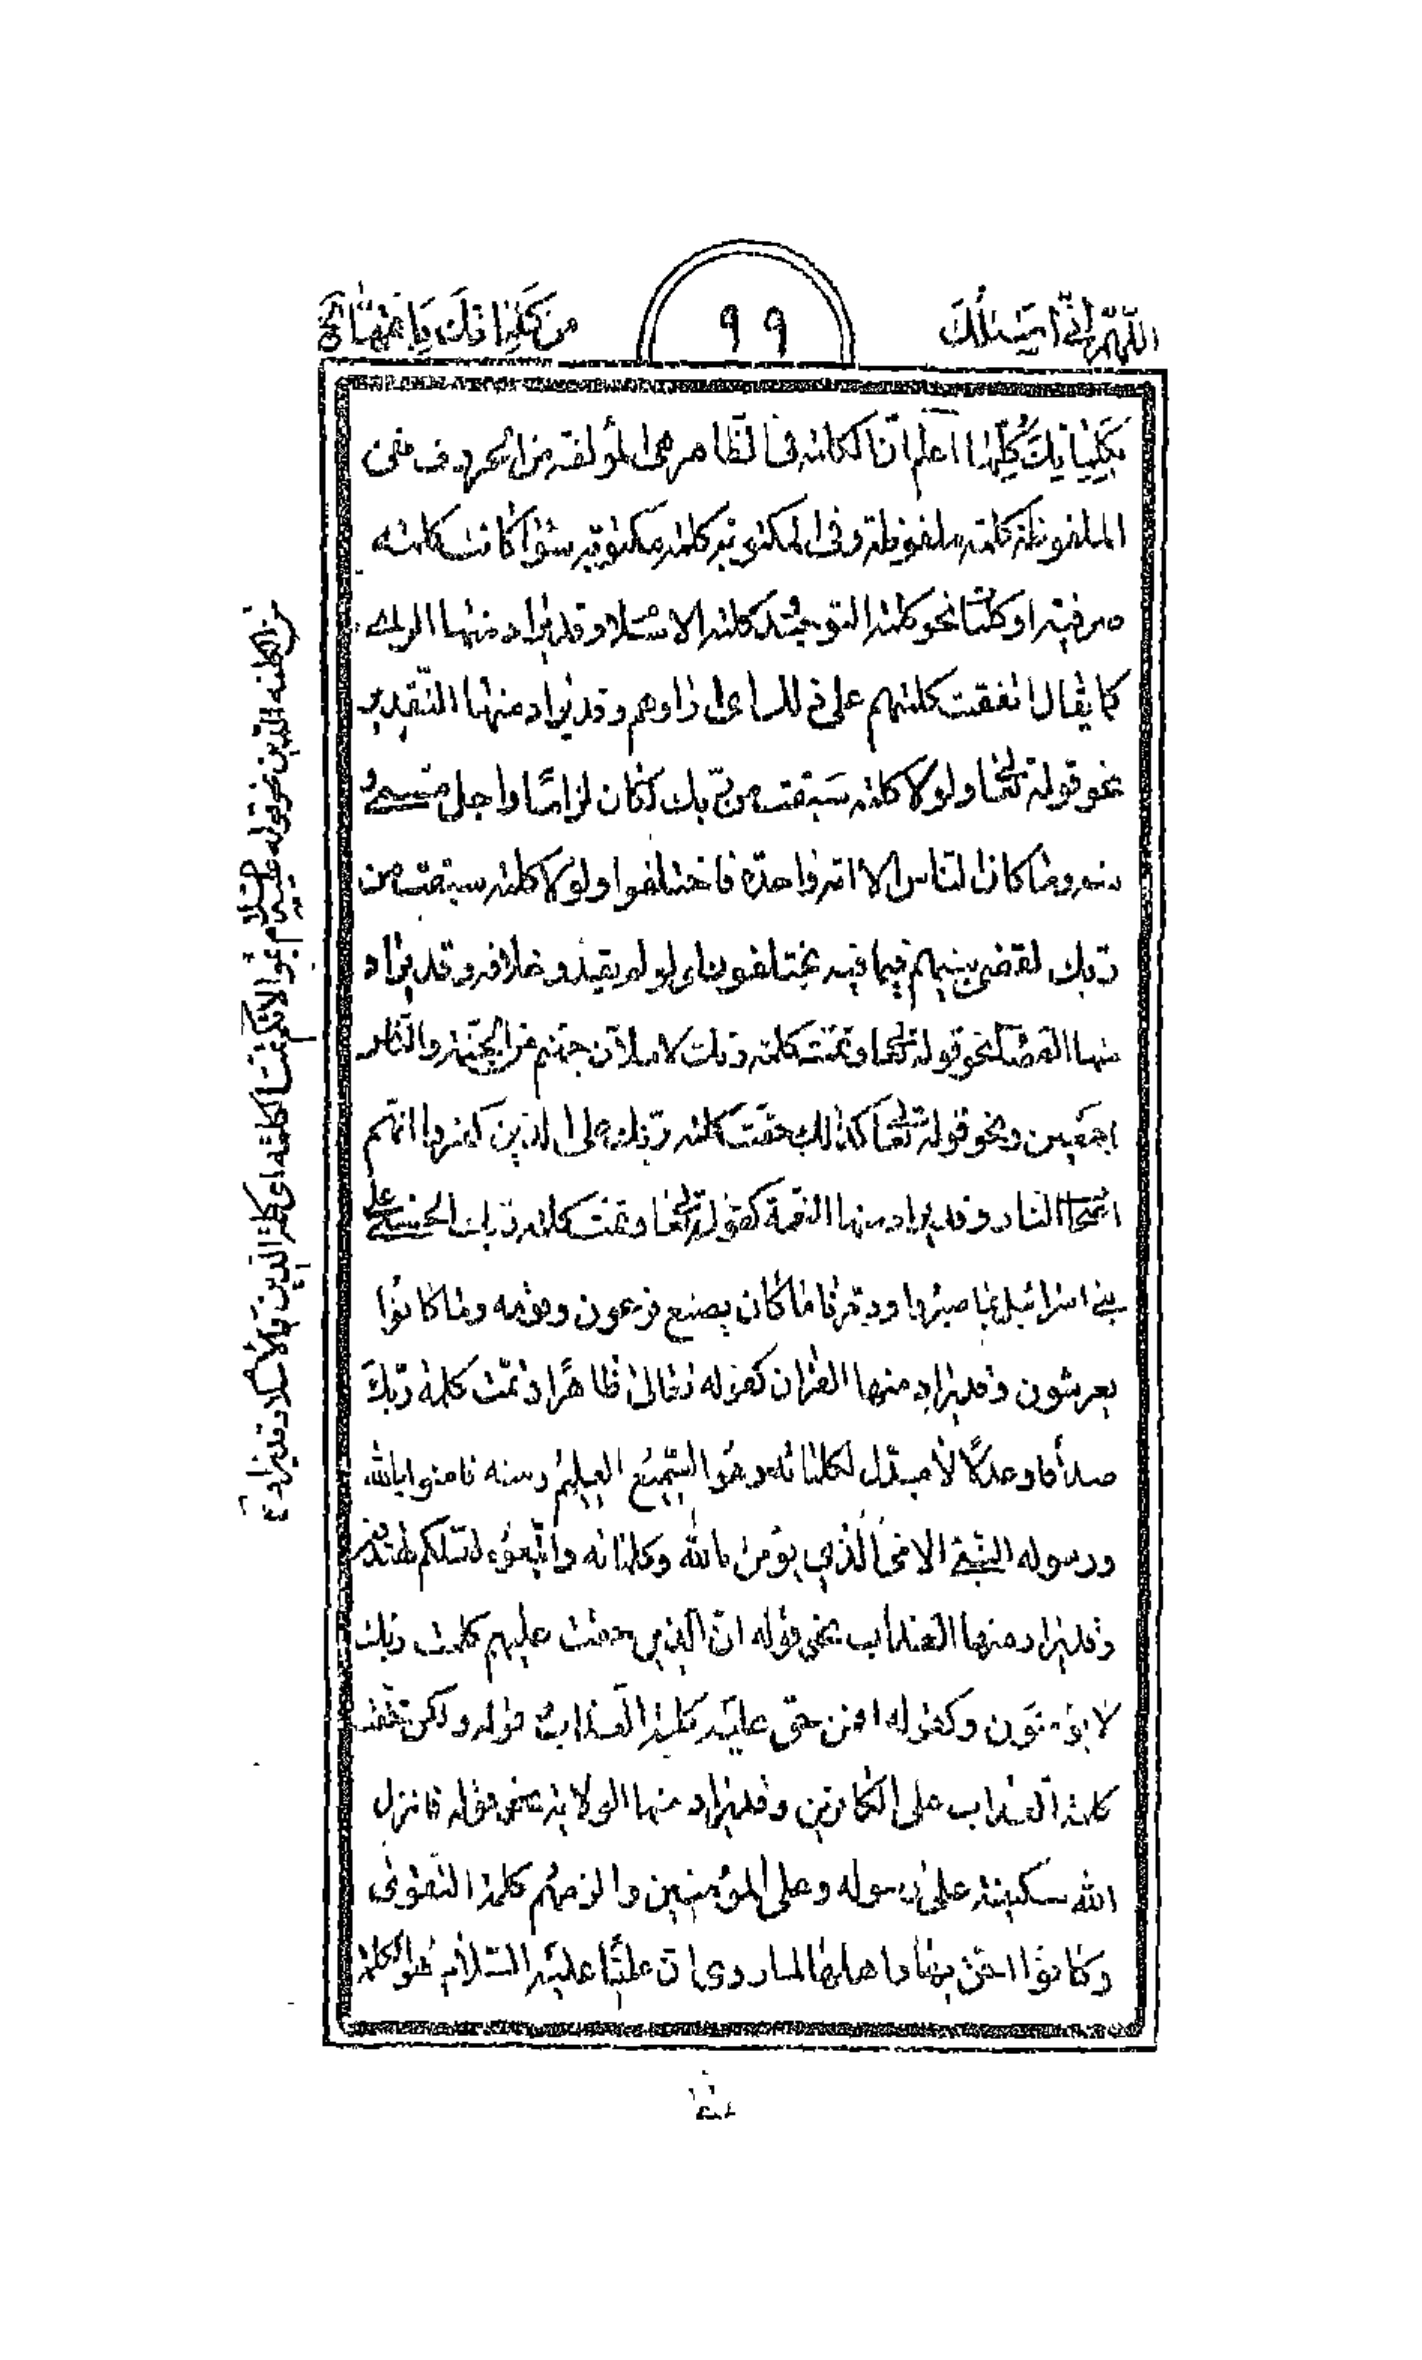 اللّهمّ إنّي أسئلك
٩٩
من كلماتك بأتمّها
بكلماتك كلّها اعلم انّ الكلمة في الظاهر هي المؤلفة من الحروف ففي
الملفوظة كلمة ملفوظة وفي المكتوبة كلمة مكتوبة سواء كانت كلمة
او كلمات نحو كلمة التوحيد كلمة الاسلام وقد يراد منها الراي
كما يقال اتفقت كلمتهم على ذلك اي اراؤهم وقد يراد منها التقدير
نحو قوله تعالى ولولا كلمة سبقت من ربّك لكان لزامًا واجل مسمّى
ومنه وما كان الناس الا امة واحدة فاختلفوا ولولا كلمة سبقت من
ربك لقضي بينهم فيما فيه يختلفون اي لو لم يقدر خلافه وقد يراد
منها القضاء نحو قوله تعالى وتمّت كلمة ربك لاملأنّ جهنم من الجنّة والناس
اجمعين ونحو قوله تعالى كذلك حقّت كلمة ربّك على الذين كفروا انّهم
اصحاب النار وقد يراد منها النعمة كقوله تعالى وتمّت كلمة ربك الحسنى على
بني اسرائيل بما صبروا ودمّرنا ما كان يصنع فرعون وقومه وما كانوا
يعرشون وقد يراد منها القران كقوله تعالى ظاهرًا وتمّت كلمة ربّك
صدقا وعدلًا لا مبدّل لكلماته وهو السّميع العليم ومنه فامنوا بالله
ورسوله النّبيّ الامّي الّذي يؤمن بالله وكلماته واتّبعوه لعلكم تهتدون
وقد يراد منها العذاب نحو قوله انّ الّذين حقّت عليهم كلمت ربك
لا يؤمنون وكقوله افمن حقّ عليه كلمة العذاب قوله ولكن حقّت
كلمة العذاب على الكافرين وقد يراد منها الولاية نحو قوله فانزل
الله سكينته على رسوله وعلى المؤمنين والزمهم كلمة التقوى
وكانوا احقّ بها واهلها لما روي انّ عليّا عليه السّلام هو الكلمة
من الكلمة الدين نحو قوله عليه السلام هو الا كلمة اي كلمة الدين الاسلام وقد يراد